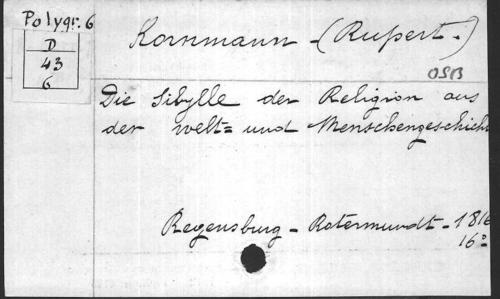 Polygr. 6
D
43
6
Kornmann - (Rupert.)
OSB
Die Sibylle der Religion aus
der welt= und Menschengeschicht
Regensburg - Rotermundt - 1816
16°